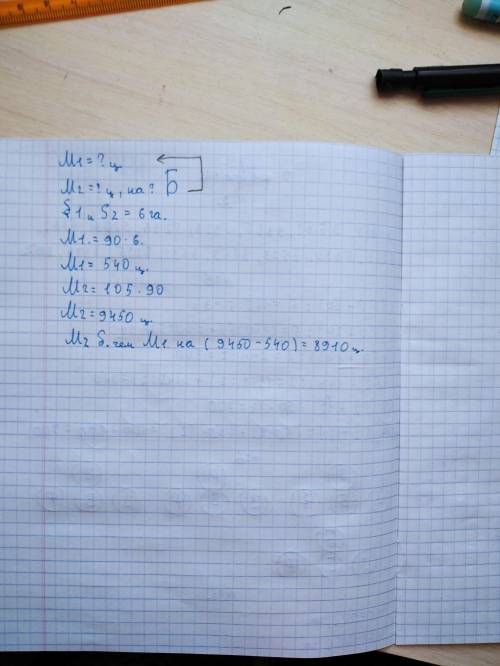 M1 = ? ц
M2 = ? ц, на ? Б
S1 и S2 = 6 га.
M1 = 90 · 6.
M1 = 540 ц.
M2 = 105 · 90
M2 = 9450 ц.
M2 б. чем M1 на (9450 - 540) = 8910 ц.